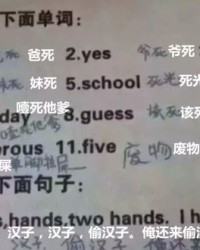 下面单词：
爸死 2.yes 爷死 爷死
妹死 5.school 死光 死光
噎死他爹
day 8.guess 该死 该死
erous 11.five 废物 废物
屎
下面句子：
s,hands,two hands. I h
汉子，汉子，偷汉子。俺还来偷汉